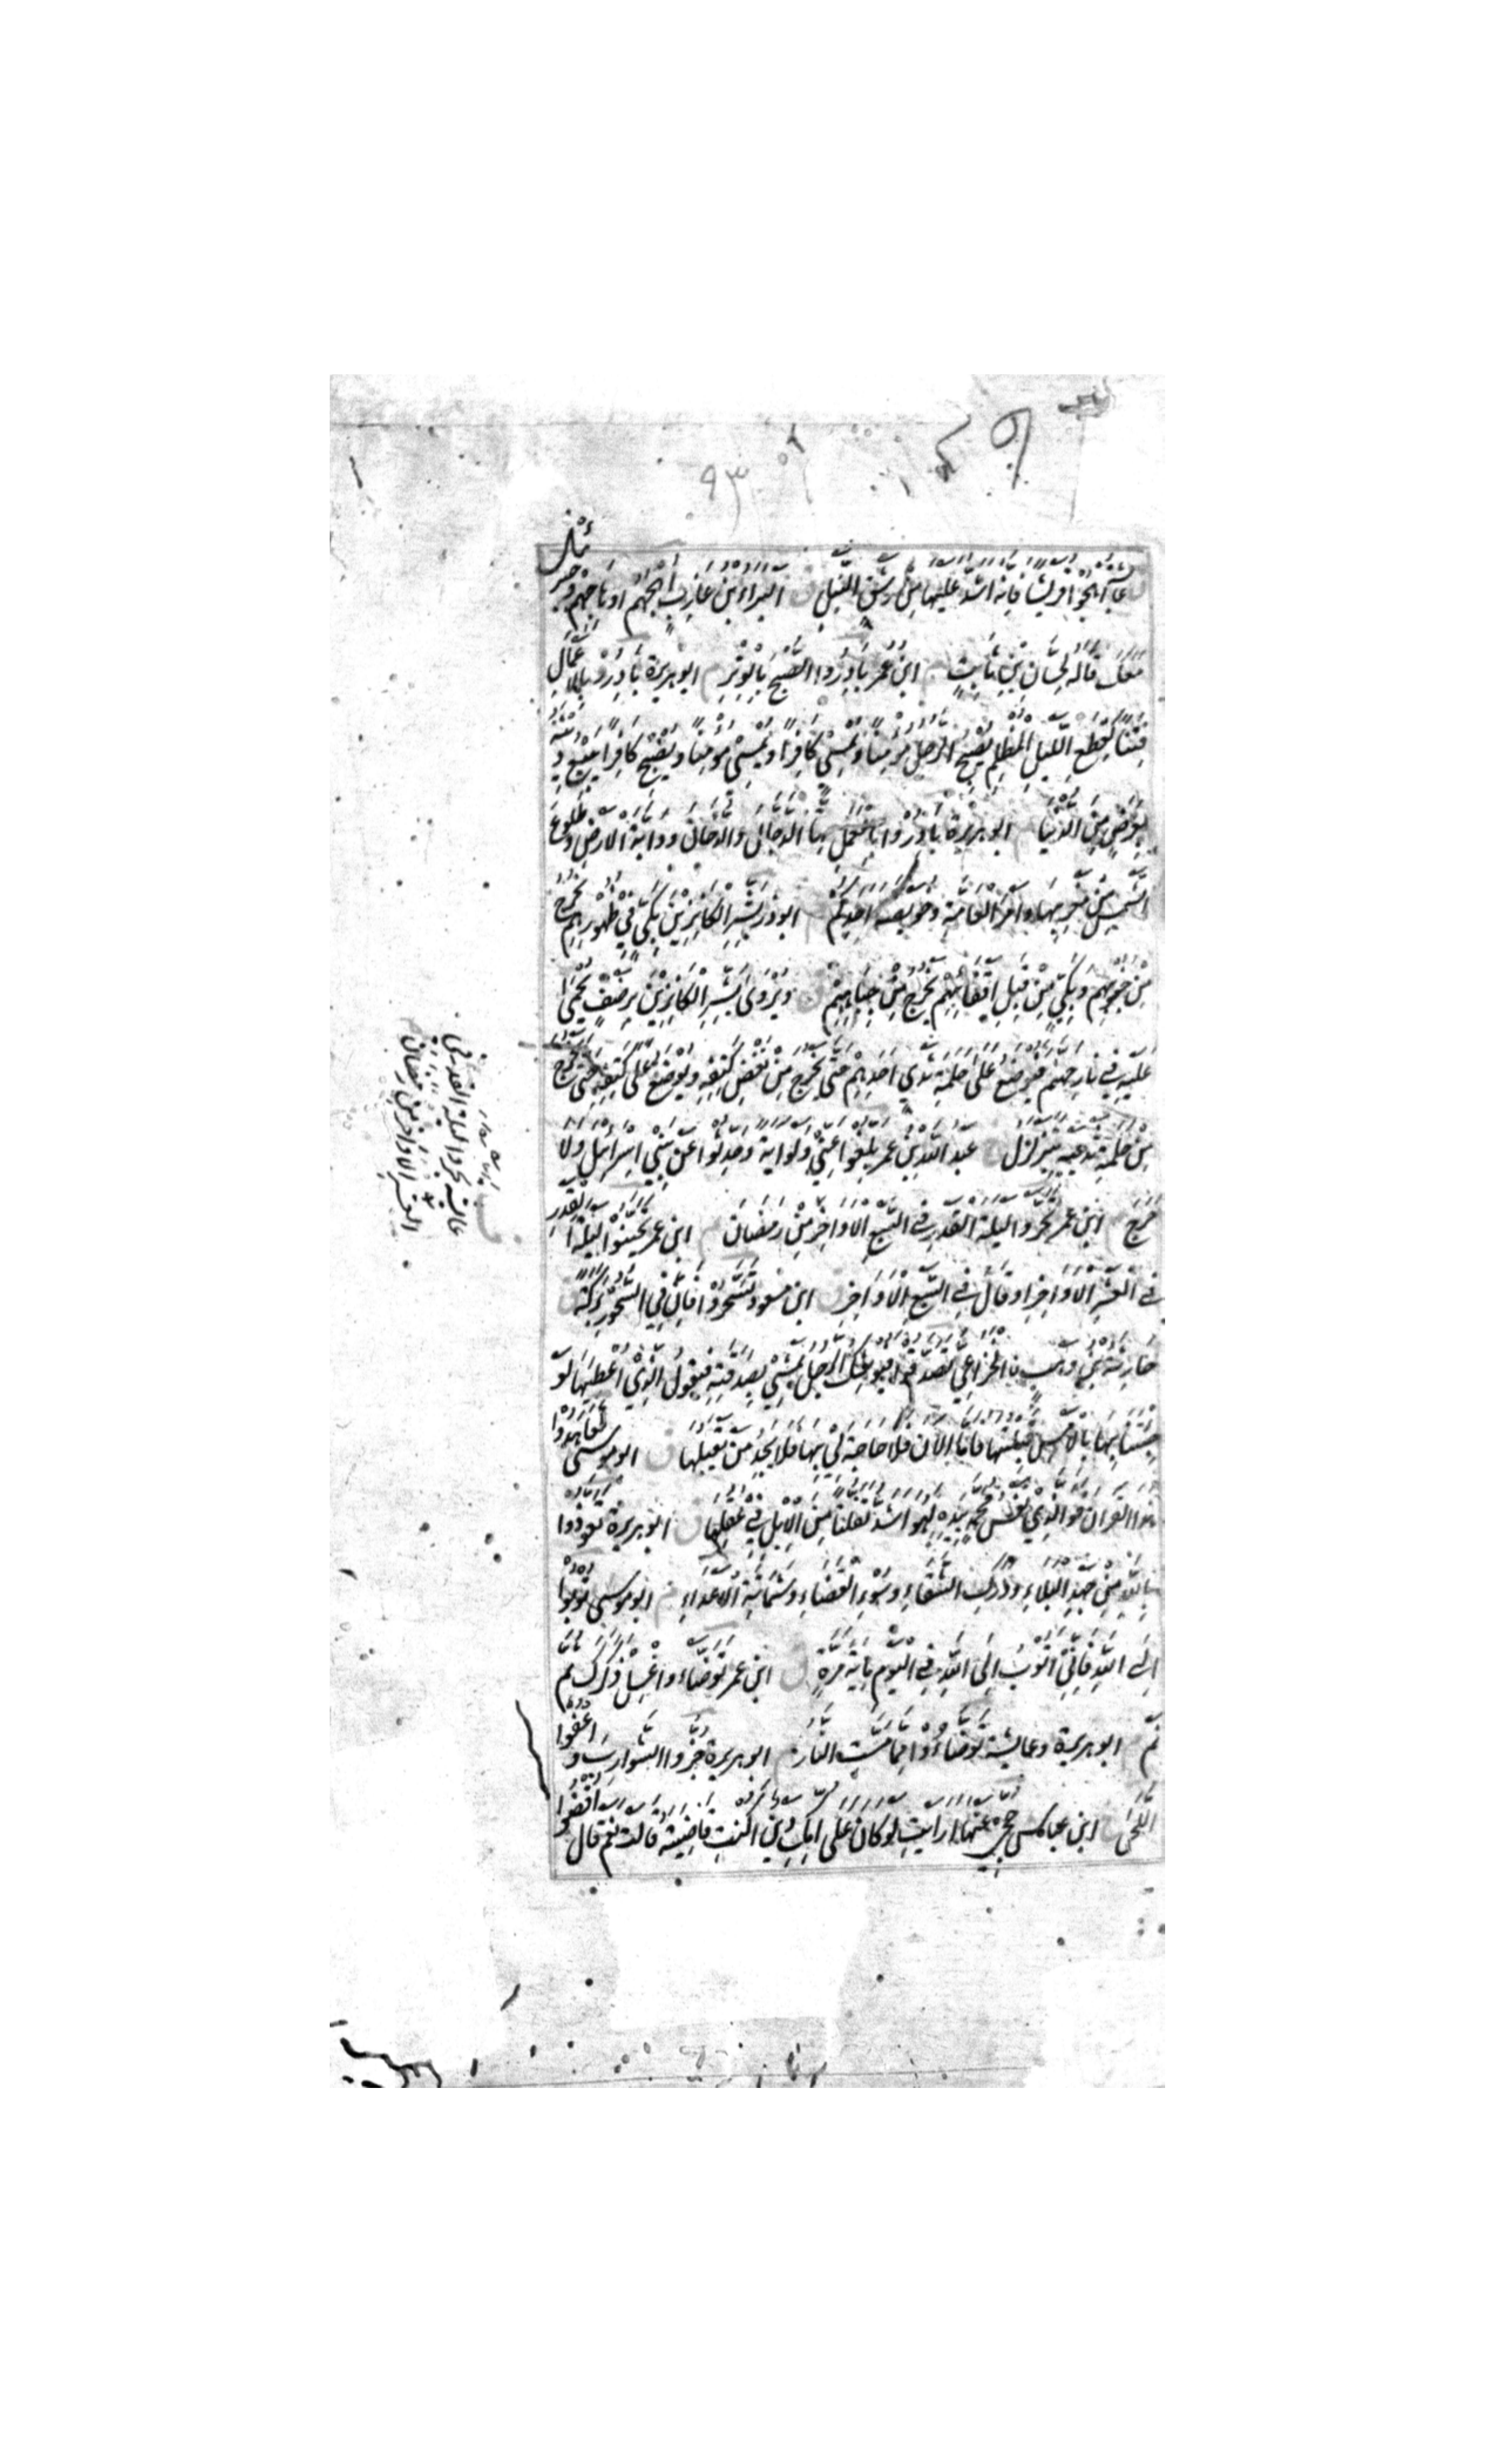 ٩٣
ق عائشة اهجوا قريشا فانه اشد عليها من رشق النبل ق البراء بن عازب اهجهم او هاجهم وجبرئيل
معك قاله لحسان بن ثابت م ابن عمر بادروا الصبح بالوتر م ابو هريرة بادروا بالاعمال
فتنا كقطع الليل المظلم يصبح الرجل مؤمنا ويمسي كافرا ويمسي مؤمنا ويصبح كافرا يبيع دينه
بعرض من الدنيا م ابو هريرة بادروا بالعمل ستا الدجال والدخان ودابة الارض وطلوع
الشمس من مغربها وامر العامة وخويصة احدكم م ابو ذر بشر الكانزين بكي في ظهورهم يخرج
من جنوبهم وبكي من قبل اقفائهم يخرج من جباههم ق ويروى بشر الكانزين برضف يحمى
عليه في نار جهنم فيوضع على حلمة ثدي احدهم حتى يخرج من نغض كتفه ويوضع على نغض كتفه حتى يخرج
من حلمة ثدييه يتزلزل خ عبد الله بن عمر بلغوا عني ولو اية وحدثوا عن بني اسرائيل ولا
حرج م ابن عمر تحروا ليلة القدر في السبع الاواخر من رمضان م ابن عمر تحينوا ليلة القدر
في العشر الاواخر او قال في السبع الاواخر ق ابن مسعود تسحروا فان في السحور بركة ق
حارثة بن وهب الخزاعي تصدقوا فيوشك الرجل يمشي بصدقته فيقول الذي اعطيها لو
جئتنا بها بالامس قبلتها فاما الان فلا حاجة لي بها فلا يجد من يقبلها ق ابو موسى تعاهدوا
هذا القران فوالذي نفس محمد بيده لهو اشد تفلتا من الابل في عقلها ق ابو هريرة تعوذوا
بالله من جهد البلاء ودرك الشقاء وسوء القضاء وشماتة الاعداء م ابو موسى توبوا
الى الله فاني اتوب الى الله في اليوم مائة مرة ق ابن عمر توضاء واغسل ذكرك ثم
نم م ابو هريرة وعائشة توضاؤا مما مست النار م ابو هريرة جزوا الشوارب واعفوا
اللحى خ ابن عباس حجي عنها ارايت لو كان على امك دين اكنت قاضيته قالت نعم قال اقضوا
عائشة تحروا ليلة القدر في
العشر الاواخر من رمضان